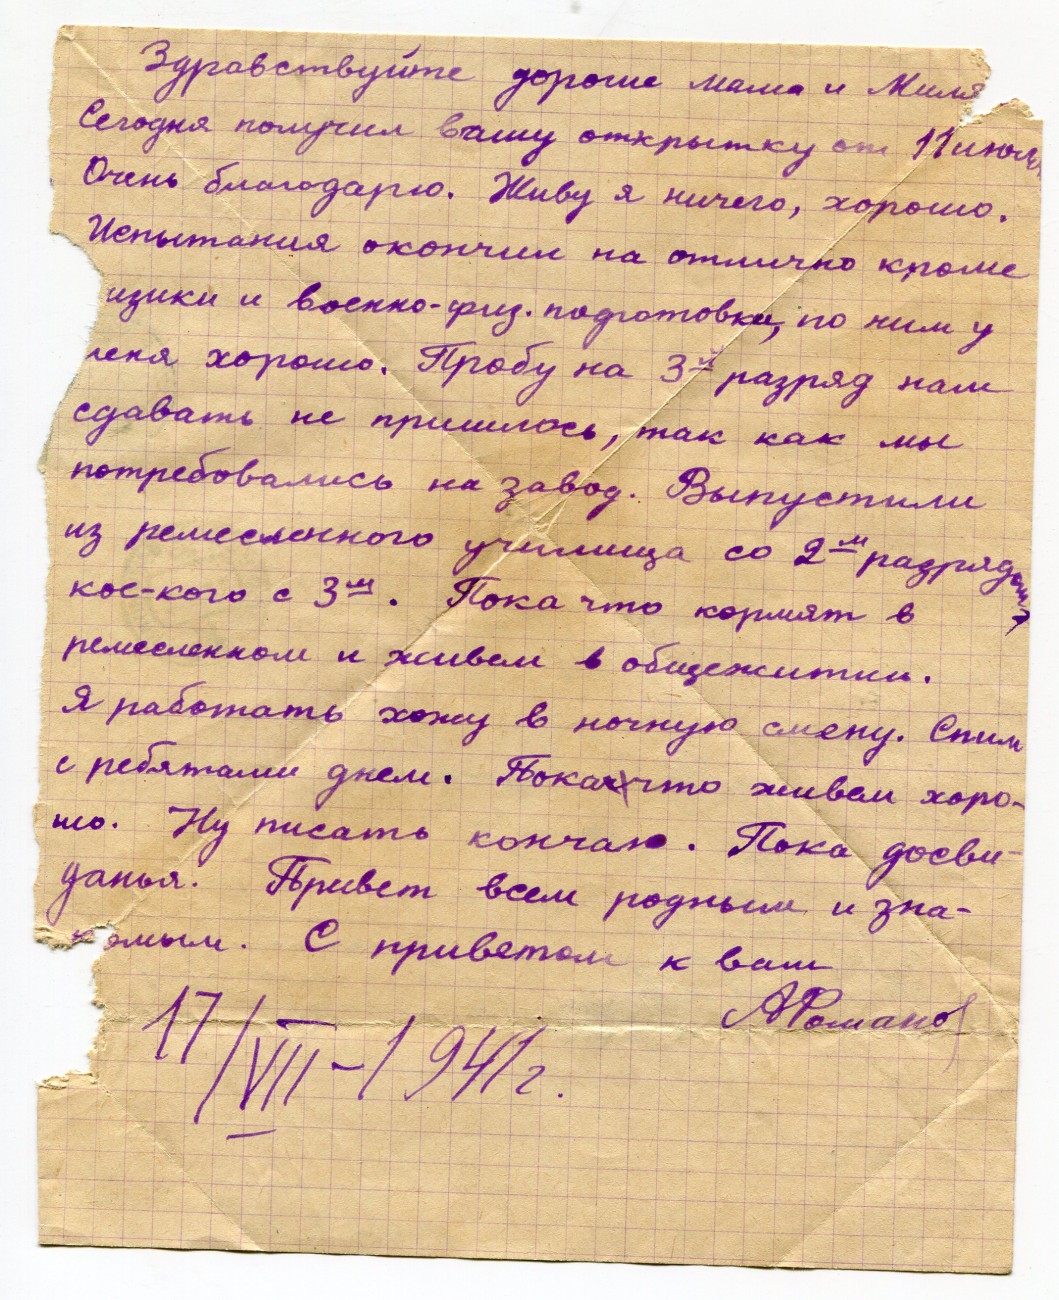 Здравствуйте дорогие мама и Миля
Сегодня получил вашу открытку от 11 июля.
Очень благодарю. Живу я ничего, хорошо.
Испытания окончил на отлично кроме
изики и военно-физ. подготовки, по ним у
меня хорошо. Пробу на 3-й разряд нам
сдавать не пришлось, так как мы
потребовались на завод. Выпустили
из ремесленного училища со 2-м разрядом,
кое-кого с 3-м. Пока что кормят в
ремесленном и живем в общежитии.
Я работать хожу в ночную смену. Спим
с ребятами днем. Пока что живем хоро-
шо. Ну писать кончаю. Пока досви-
данья. Привет всем родным и зна-
комым. С приветом к вам
АРоманов
17/VII-1941г.